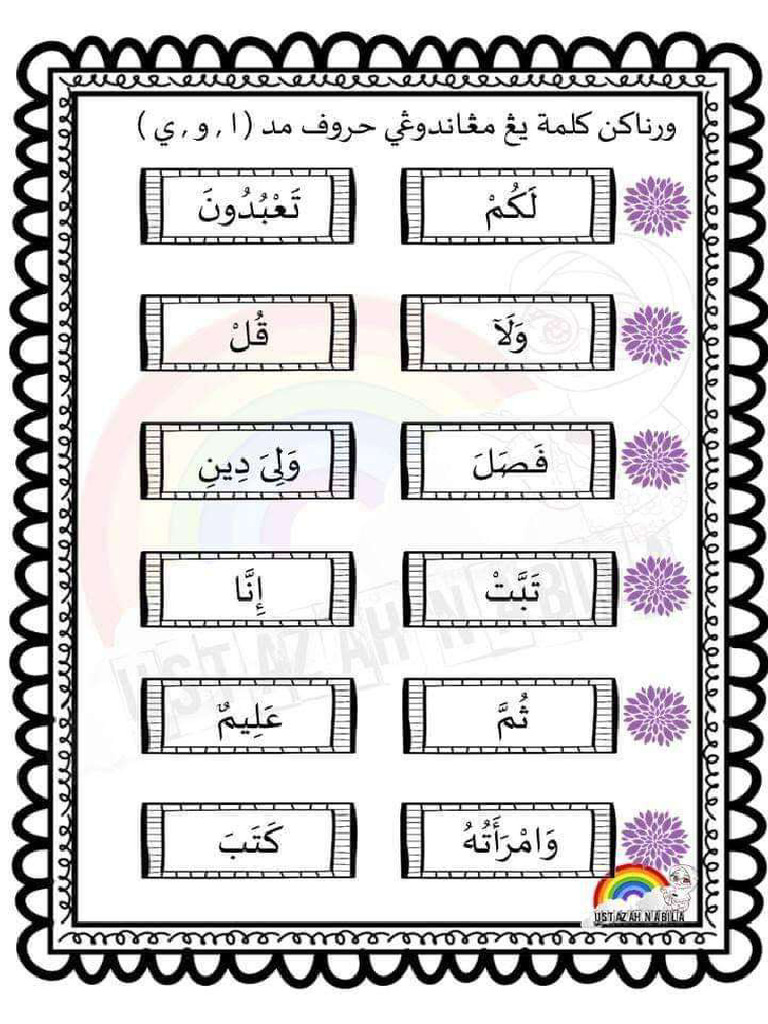 ورناكن كلمة يڠ مڠاندوڠي حروف مد (ا , و , ي)
لَكُمْ تَعْبُدُونَ
وَلَآ قُلْ
فَصَلَ وَلِىَ دِينِ
تَبَّتْ إِنَّا
ثُمَّ عَلِيمٌ
وَامْرَأَتُهُ كَتَبَ
USTAZAH NABILA
USTAZAH NABILA